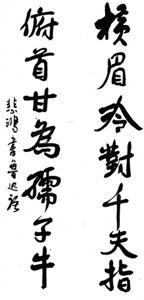 橫眉冷對千夫指
俯首甘為孺子牛
悲鴻書魯迅句